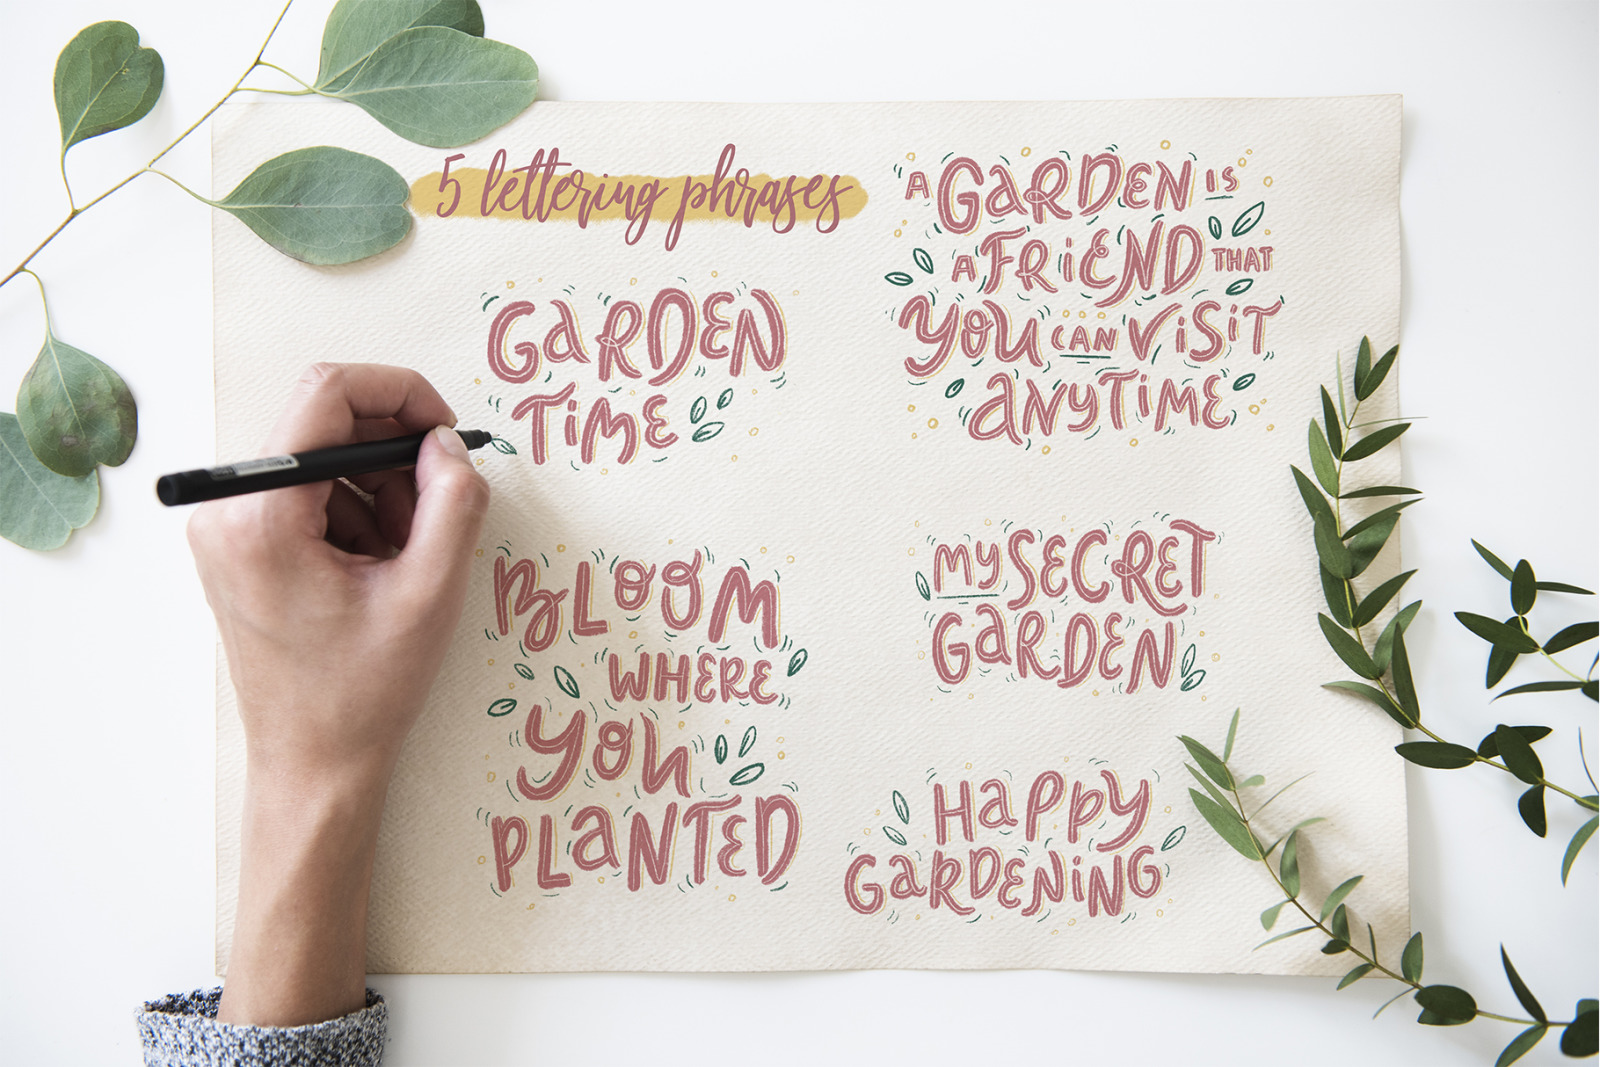 5 lettering phrases
GARDEN
TIME
A GARDEN IS
A FRIEND THAT
YOU CAN VISIT
ANYTIME
BLOOM
WHERE
YOU
PLANTED
MY SECRET
GARDEN
HAPPY
GARDENING